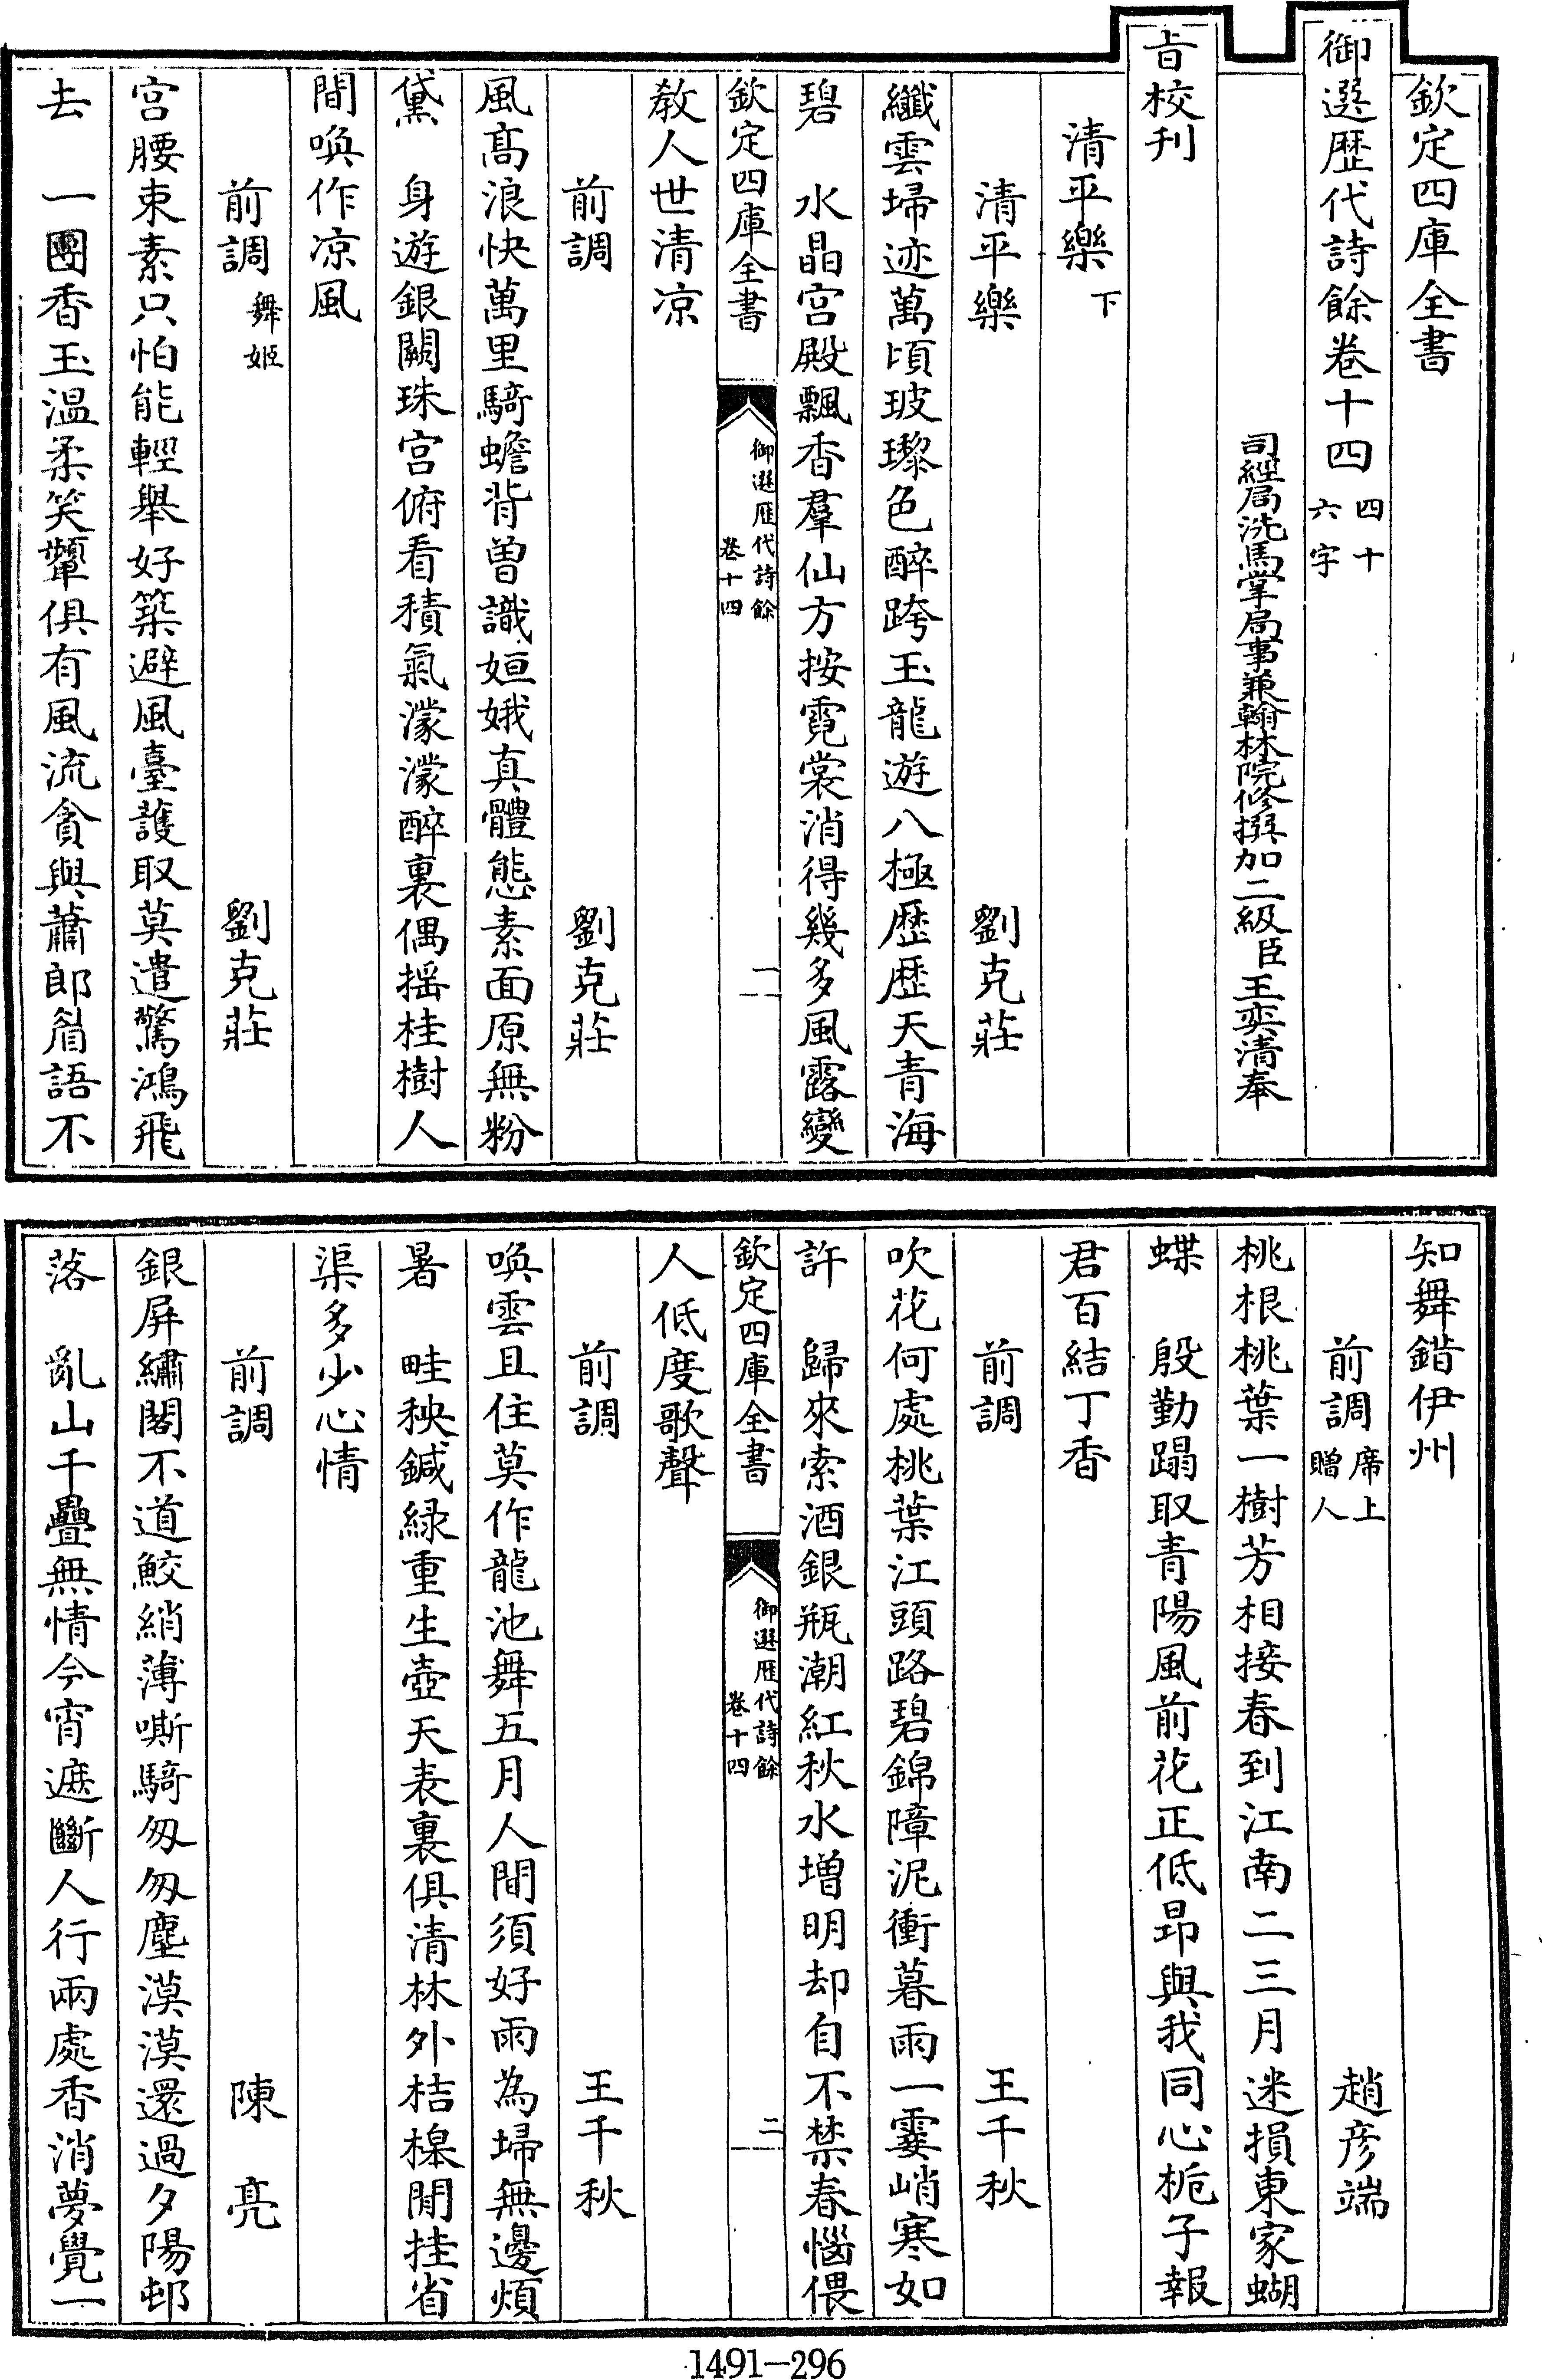 欽定四庫全書
御選歷代詩餘卷十四四十六字
司經局洗馬掌局事兼翰林院修撰加二級臣王奕清奉
旨校刊
清平樂下
清平樂 劉克莊
纖雲埽迹萬頃玻瓈色醉跨玉龍遊八極歷歷天青海
碧 水晶宮殿飄香羣仙方按霓裳消得幾多風露變
欽定四庫全書 御選歷代詩餘卷十四 一
教人世清凉
前調 劉克莊
風高浪快萬里騎蟾背曾識姮娥真體態素面原無粉
黛 身遊銀闕珠宮俯看積氣濛濛醉裏偶揺桂樹人
間喚作凉風
前調舞姬 劉克莊
宮腰束素只怕能輕舉好築避風臺護取莫遣驚鴻飛
去 一團香玉温柔笑顰俱有風流貪與蕭郎眉語不
知舞錯伊州
前調席上贈人 趙彦端
桃根桃葉一樹芳相接春到江南二三月迷損東家蝴
蝶 殷勤蹋取青陽風前花正低昂與我同心栀子報
君百結丁香
前調 王千秋
吹花何處桃葉江頭路碧錦障泥衝暮雨一霎峭寒如
許 歸來索酒銀瓶潮紅秋水增明却自不禁春惱偎
欽定四庫全書 御選歷代詩餘卷十四 二
人低度歌聲
前調 王千秋
喚雲且住莫作龍池舞五月人間須好雨為埽無邊煩
暑 畦秧鍼緑重生壺天表裏俱清林外桔橰閒挂省
渠多少心情
前調 陳亮
銀屏繡閣不道鮫綃薄嘶騎匆匆塵漠漠還過夕陽邨
落 亂山千疊無情今宵遮斷人行兩處香消夢覺一
1491-296